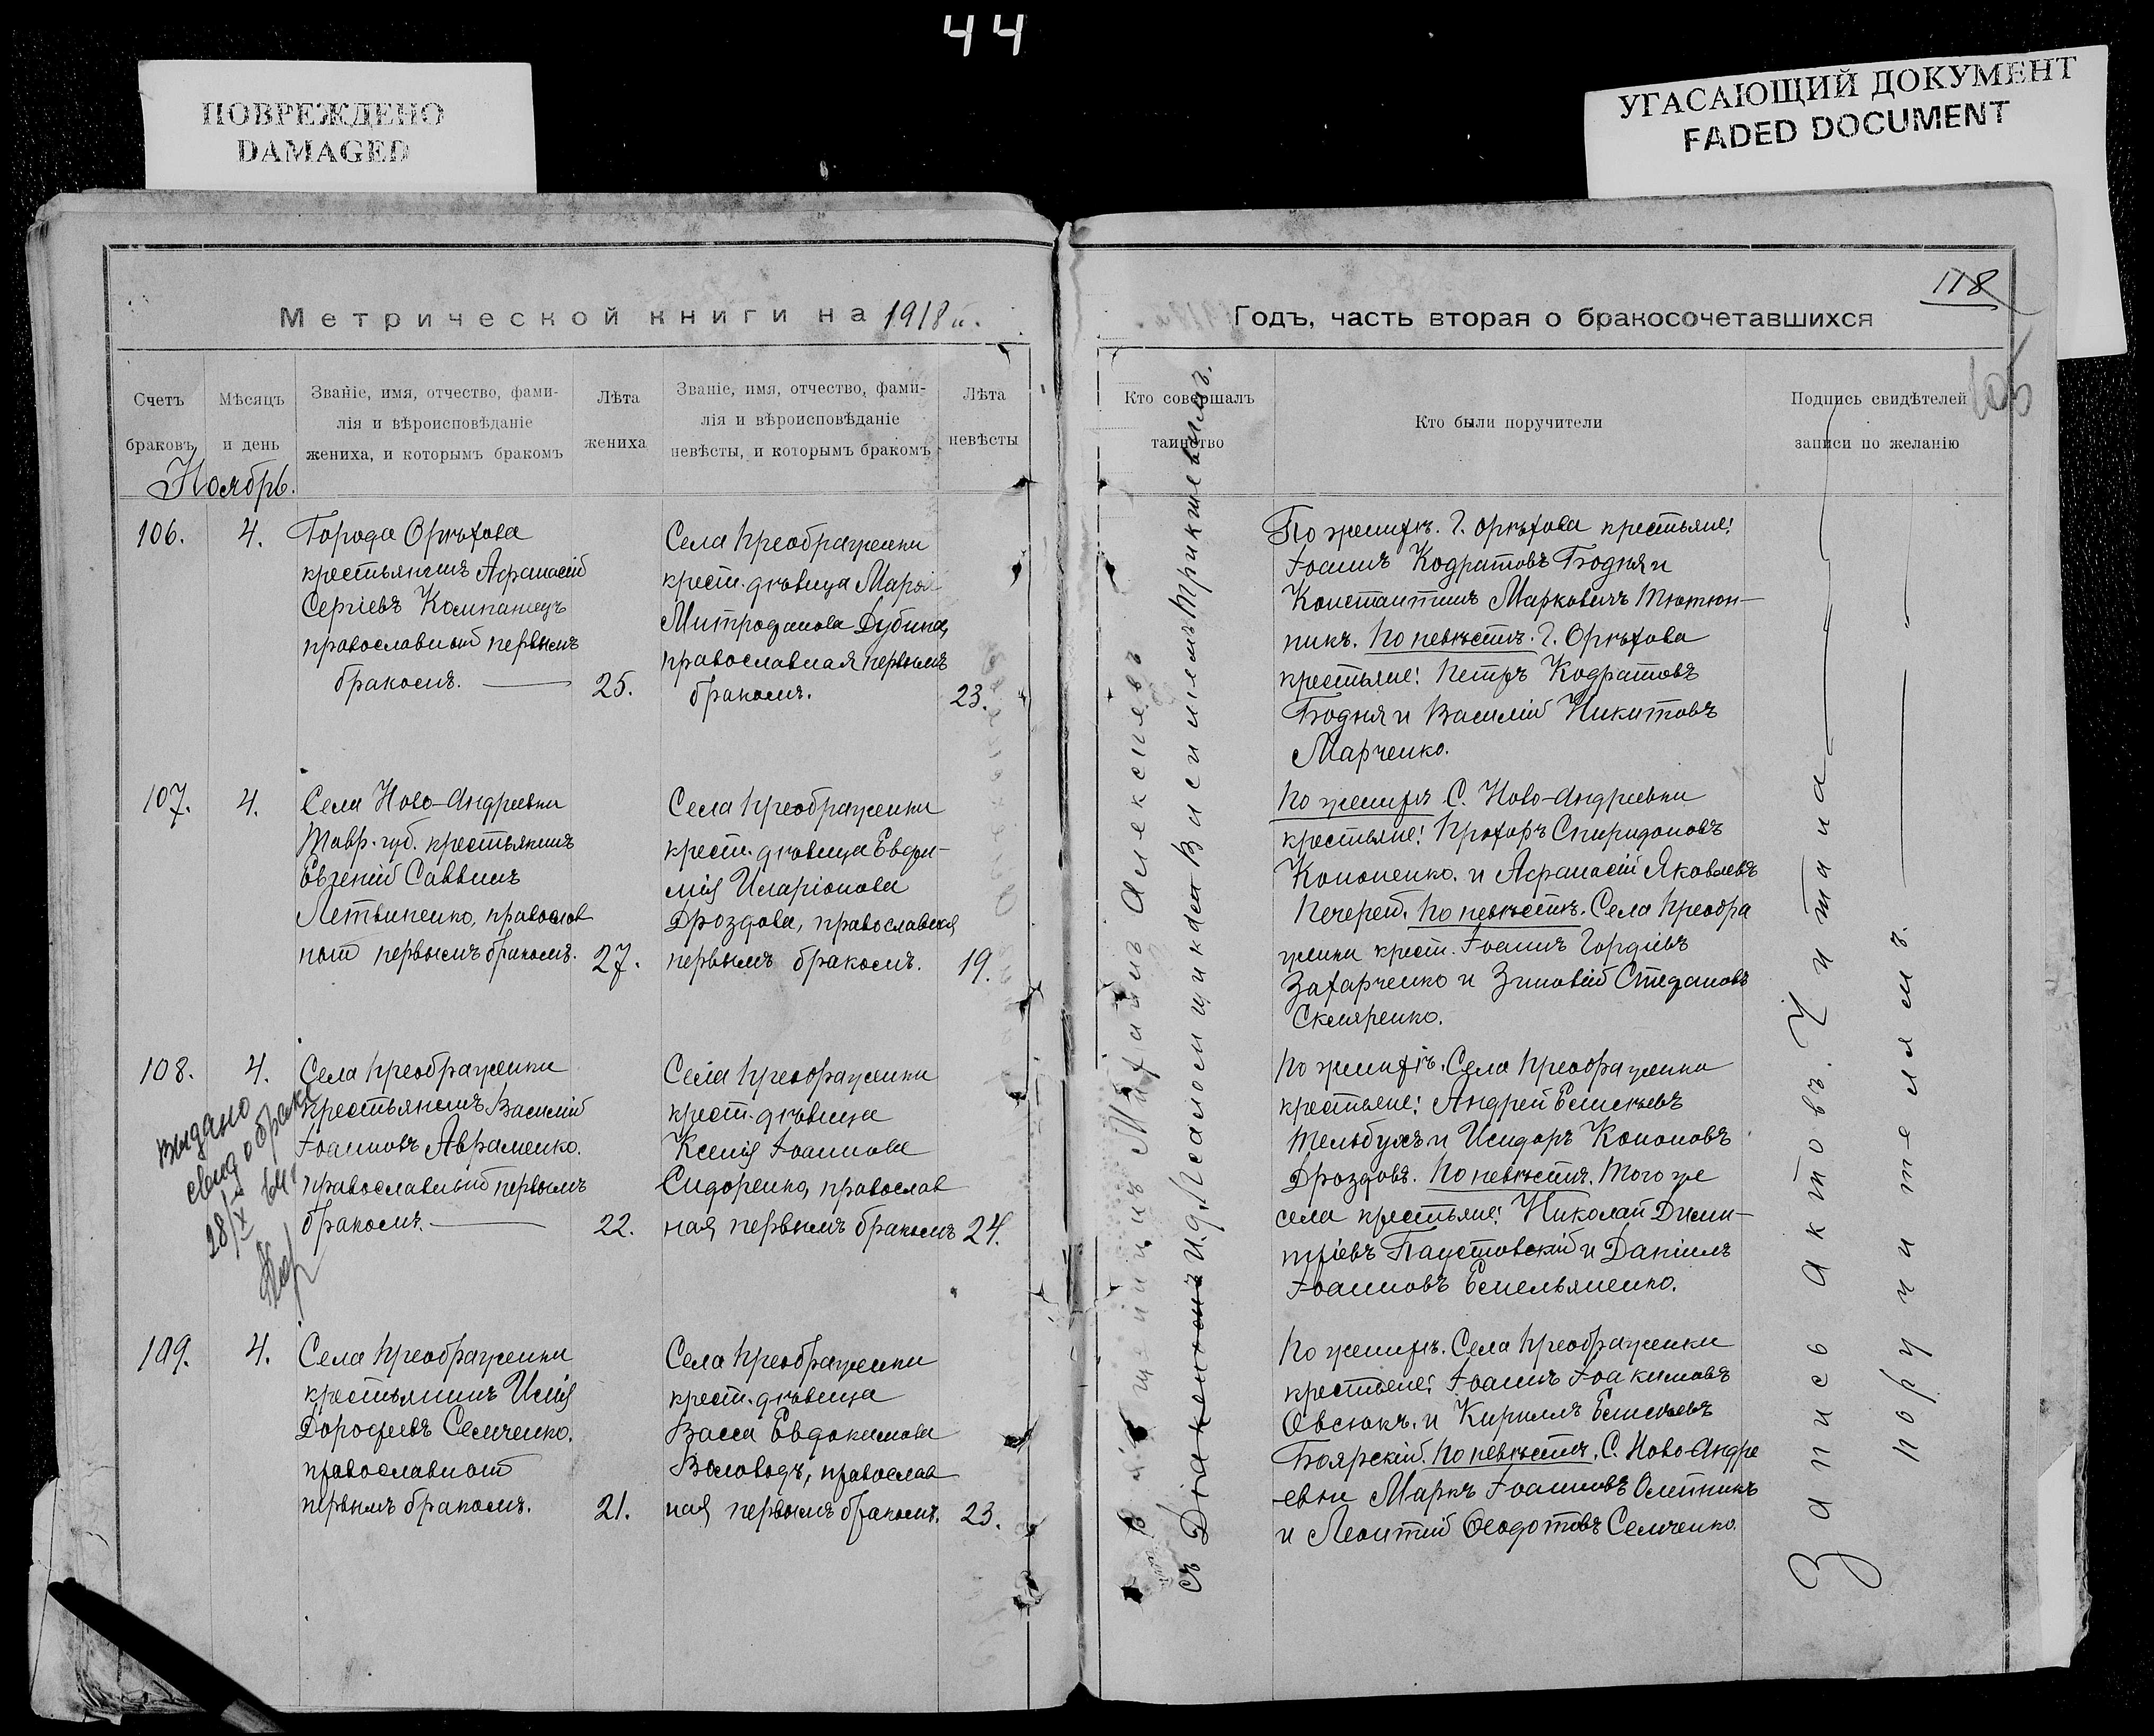 44
ПОВРЕЖДЕНО
DAMAGED
УГАСАЮЩИЙ ДОКУМЕНТ
FADED DOCUMENT
118
Метрической книги на 1918 г.
Годъ, часть вторая о бракосочетавшихся
105
Счетъ
браковъ
Мѣсяцъ
и день
Званіе, имя, отчество, фами-
лія и вѣроисповѣданіе
жениха, и которымъ бракомъ
Лѣта
жениха
Званіе, имя, отчество, фами-
лія и вѣроисповѣданіе
невѣсты, и которымъ бракомъ
Лѣта
невѣсты
Кто совершалъ
таинство
Кто были поручители
Подпись свидѣтелей
записи по желанію
Ноябрь.
106.
4.
Города Орѣхова
крестьянинъ Афанасій
Сергіевъ Компанецъ
православный первымъ
бракомъ.
25.
Села Преображенки
крест. дѣвица Марія
Митрофанова Дубина,
православная первымъ
бракомъ.
23.
По женихѣ. Г. Орѣхова крестьяне:
Іоаннъ Кодратовъ Бодня и
Константинъ Марковичъ Тютюн-
никъ. По невѣстѣ. Г. Орѣхова
крестьяне: Петръ Кодратовъ
Бодня и Василій Никитовъ
Марченко.
107.
4.
Села Ново-Андреевки
Тавр. губ. крестьянинъ
Евгеній Саввинъ
Летвиненко, православ
ный первымъ бракомъ.
27.
Села Преображенки
крест. дѣвица Евфи-
мія Иларіонова
Дроздова, православная
первымъ бракомъ.
19.
По женихѣ С. Ново-Андреевки
крестьяне: Прохоръ Спиридоновъ
Кононенко. и Афанасій Яковлевъ
Печерей. По невѣстѣ. Села Преобра
женки крест. Іоаннъ Гордіевъ
Захарченко и Зиновій Стефановъ
Скляренко.
108.
4.
Села Преображенки
крестьянинъ Василій
Іоанновъ Авраменко.
православный первымъ
бракомъ.
22.
Села Преображенки
крест. дѣвица
Ксенія Іоаннова
Сидоренко, православ
ная первымъ бракомъ
24.
По женихѣ. Села Преображенки
крестьяне: Андрей Евсиѣевъ
и Исидоръ Кононовъ
Дроздовъ. По невѣстѣ. Того же
села крестьяне: Николай Дими-
тріевъ Паустовскій и Даніилъ
Іоанновъ Емельяненко.
выдано
свид о браке
28/X
109.
4.
Села Преображенки
крестьянинъ Илія
Дорофеевъ Семченко.
православный
первымъ бракомъ.
21.
Села Преображенки
крест. дѣвица
Васса Евдокимова
Воловодъ, православ
ная первымъ бракомъ.
23.
По женихѣ. Села Преображенки
крестьяне: Іоаннъ Іоакимовъ
Овсюкъ. и Кириллъ
Боярскій. По невѣстѣ. С. Ново-Андре
евки Маркъ Іоанновъ Олейникъ
и Леонтій Ѳеодотовъ Семченко.
Священникъ Михаилъ Алексѣевъ
съ Діакономъ И.д. Псаломщика Василіемъ
Запись актовъ. Читана
поручителямъ.